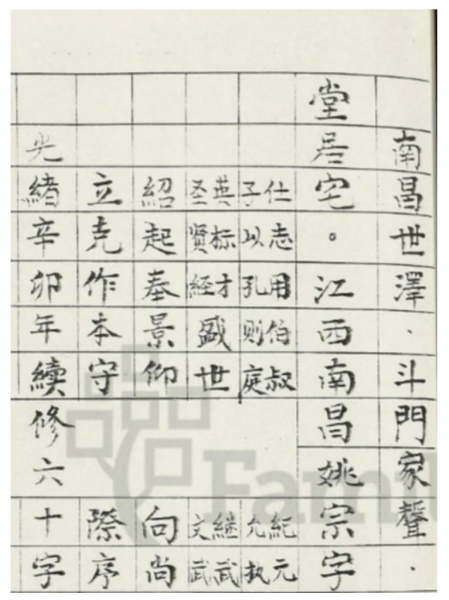 南昌世澤.斗門家聲.
堂居宅。江西南昌姚宗字
仕志用伯叔 紀元
子以孔则庭 允执
英标才盛世 继武
圣贤经 文武
紹起奉景仰 向尚
立克作本守 際序
光緒辛卯年續修六十字
Fami